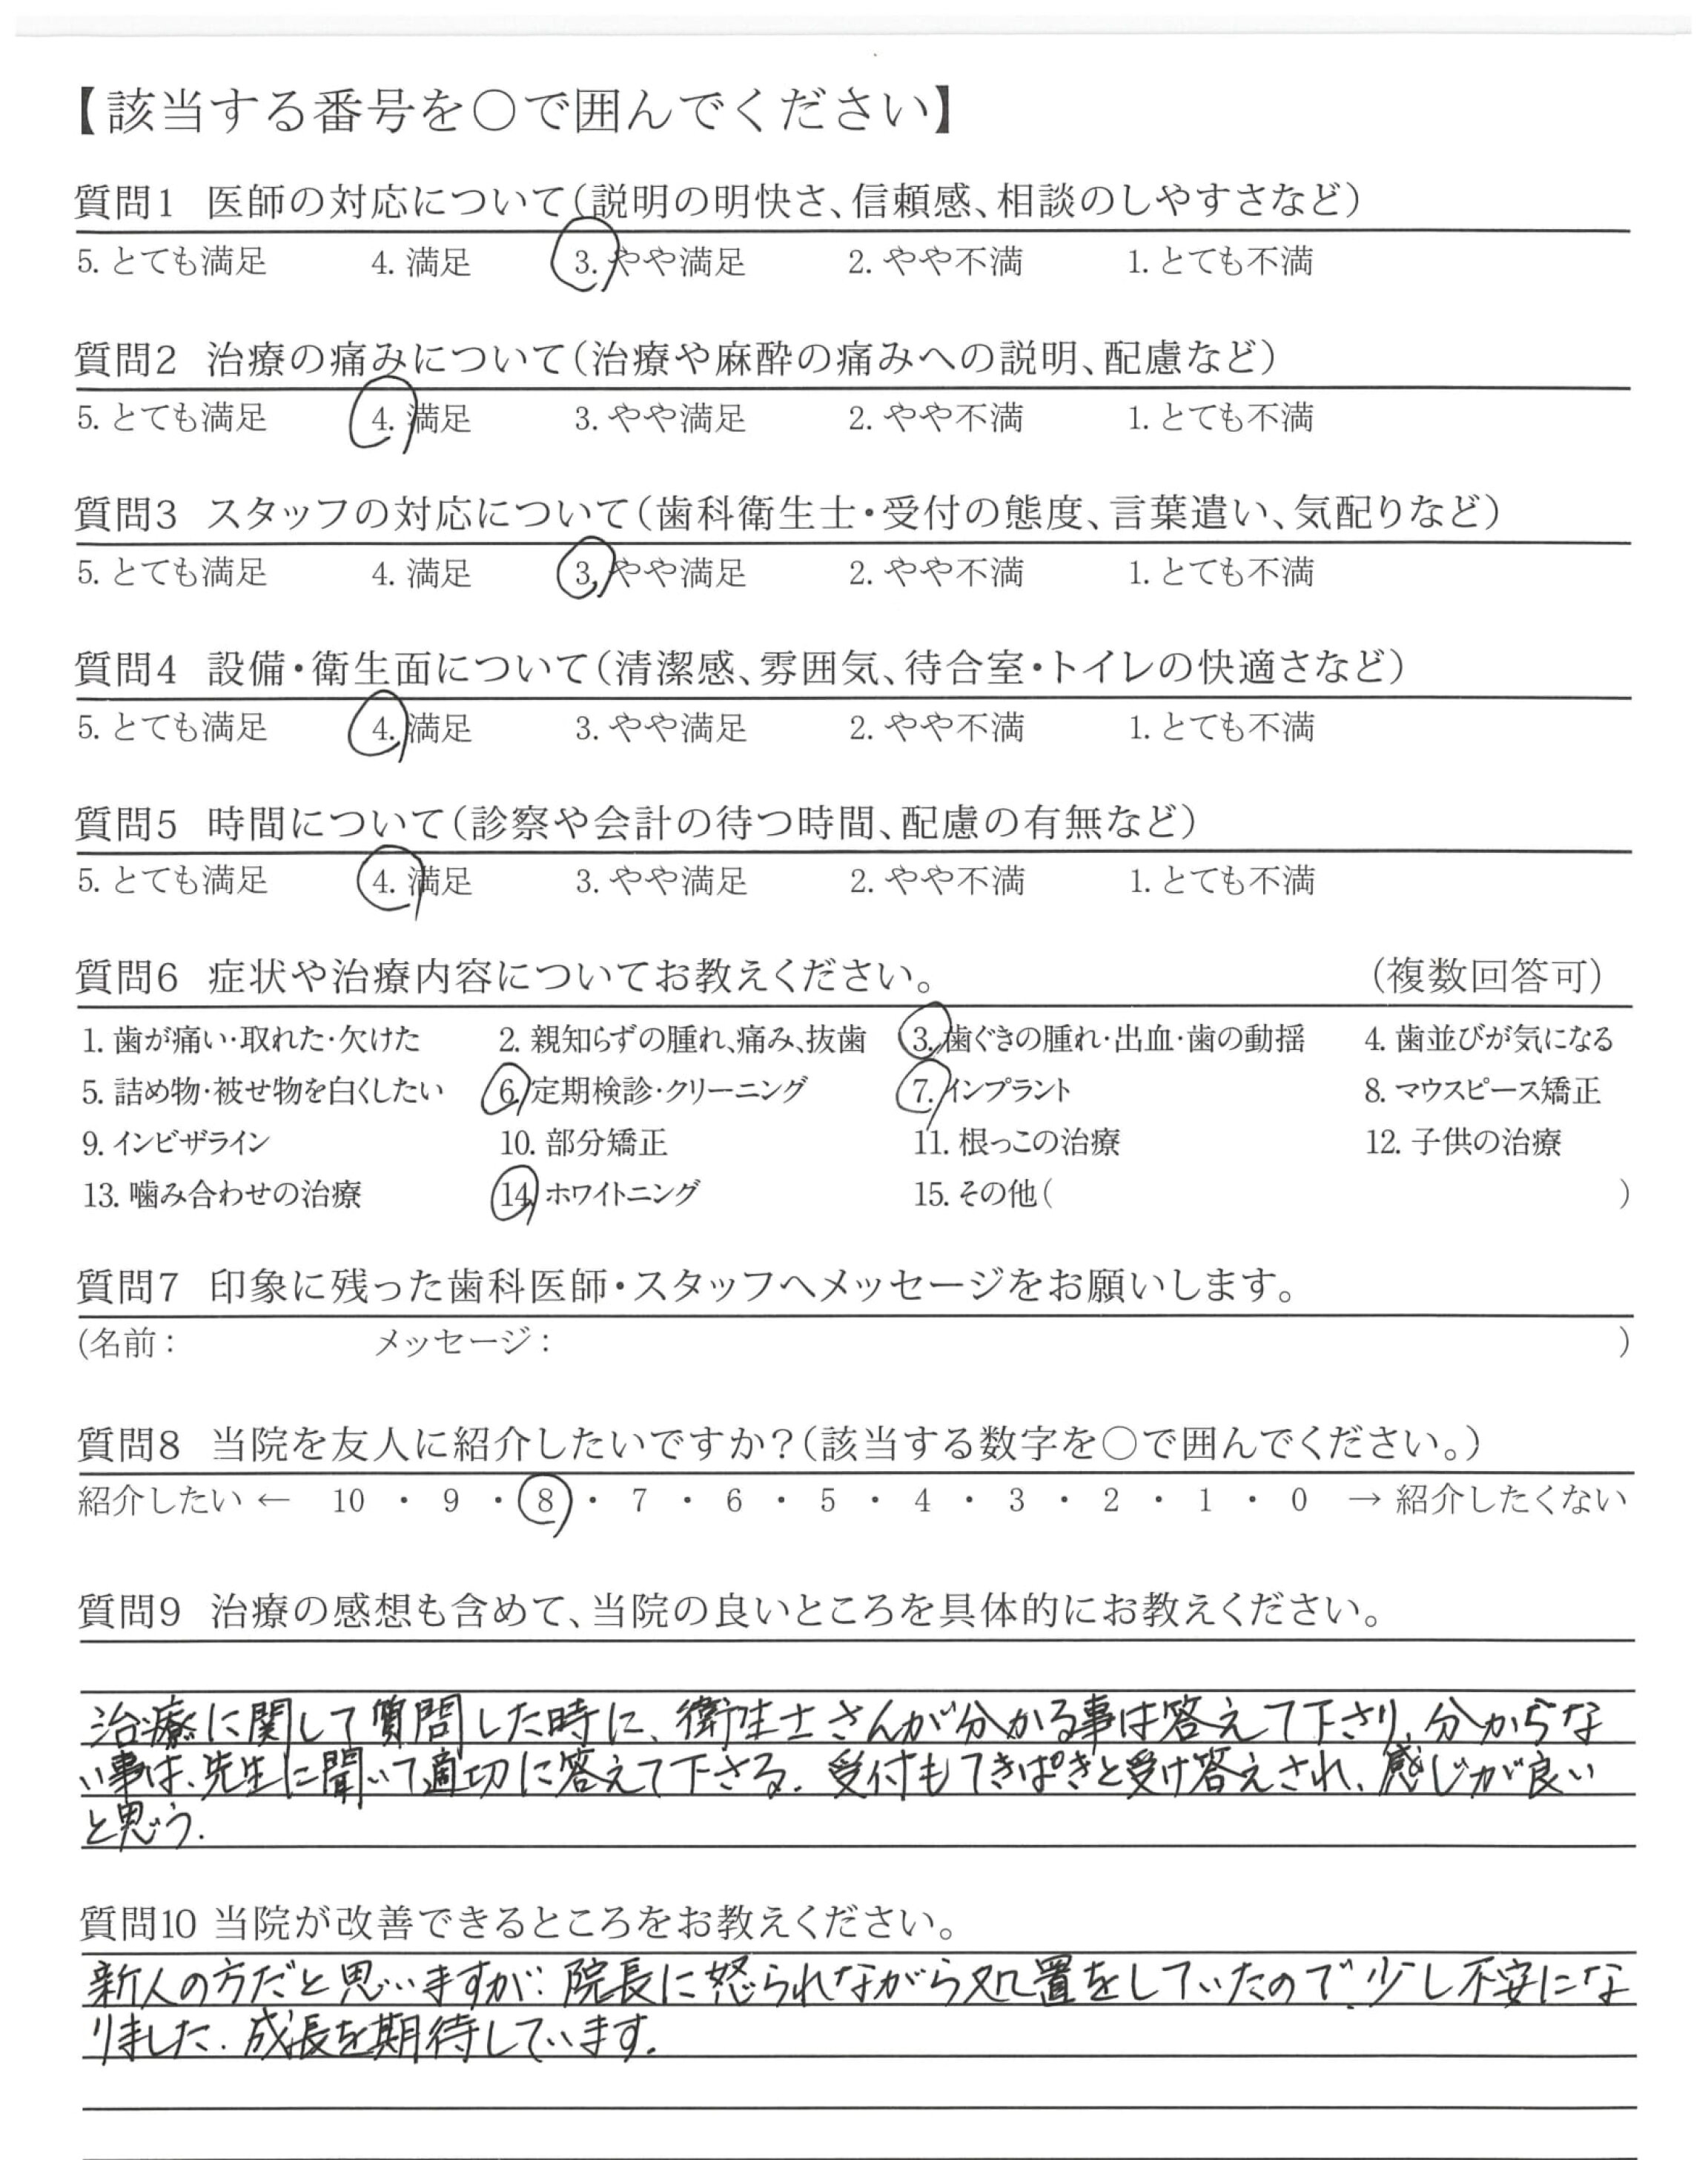 【該当する番号を○で囲んでください】
質問1 医師の対応について(説明の明快さ、信頼感、相談のしやすさなど)
5. とても満足 4. 満足 3. やや満足 2. やや不満 1. とても不満
質問2 治療の痛みについて(治療や麻酔の痛みへの説明、配慮など)
5. とても満足 4. 満足 3. やや満足 2. やや不満 1. とても不満
質問3 スタッフの対応について(歯科衛生士・受付の態度、言葉遣い、気配りなど)
5. とても満足 4. 満足 3. やや満足 2. やや不満 1. とても不満
質問4 設備・衛生面について(清潔感、雰囲気、待合室・トイレの快適さなど)
5. とても満足 4. 満足 3. やや満足 2. やや不満 1. とても不満
質問5 時間について(診察や会計の待つ時間、配慮の有無など)
5. とても満足 4. 満足 3. やや満足 2. やや不満 1. とても不満
質問6 症状や治療内容についてお教えください。 (複数回答可)
1. 歯が痛い・取れた・欠けた 2. 親知らずの腫れ、痛み、抜歯 3. 歯ぐきの腫れ・出血・歯の動揺 4. 歯並びが気になる
5. 詰め物・被せ物を白くしたい 6. 定期検診・クリーニング 7. インプラント 8. マウスピース矯正
9. インビザライン 10. 部分矯正 11. 根っこの治療 12. 子供の治療
13. 噛み合わせの治療 14. ホワイトニング 15. その他( )
質問7 印象に残った歯科医師・スタッフへメッセージをお願いします。
(名前: メッセージ: )
質問8 当院を友人に紹介したいですか?(該当する数字を○で囲んでください。)
紹介したい ← 10 ・ 9 ・ 8 ・ 7 ・ 6 ・ 5 ・ 4 ・ 3 ・ 2 ・ 1 ・ 0 → 紹介したくない
質問9 治療の感想も含めて、当院の良いところを具体的にお教えください。
治療に関して質問した時に、衛生士さんが分かる事は答えて下さり、分からな
い事は、先生に聞いて適切に答えて下さる。受付もてきぱきと受け答えされ、感じが良い
と思う。
質問10 当院が改善できるところをお教えください。
新人の方だと思いますが、院長に怒られながら処置をしていたので、少し不安にな
りました。成長を期待しています。